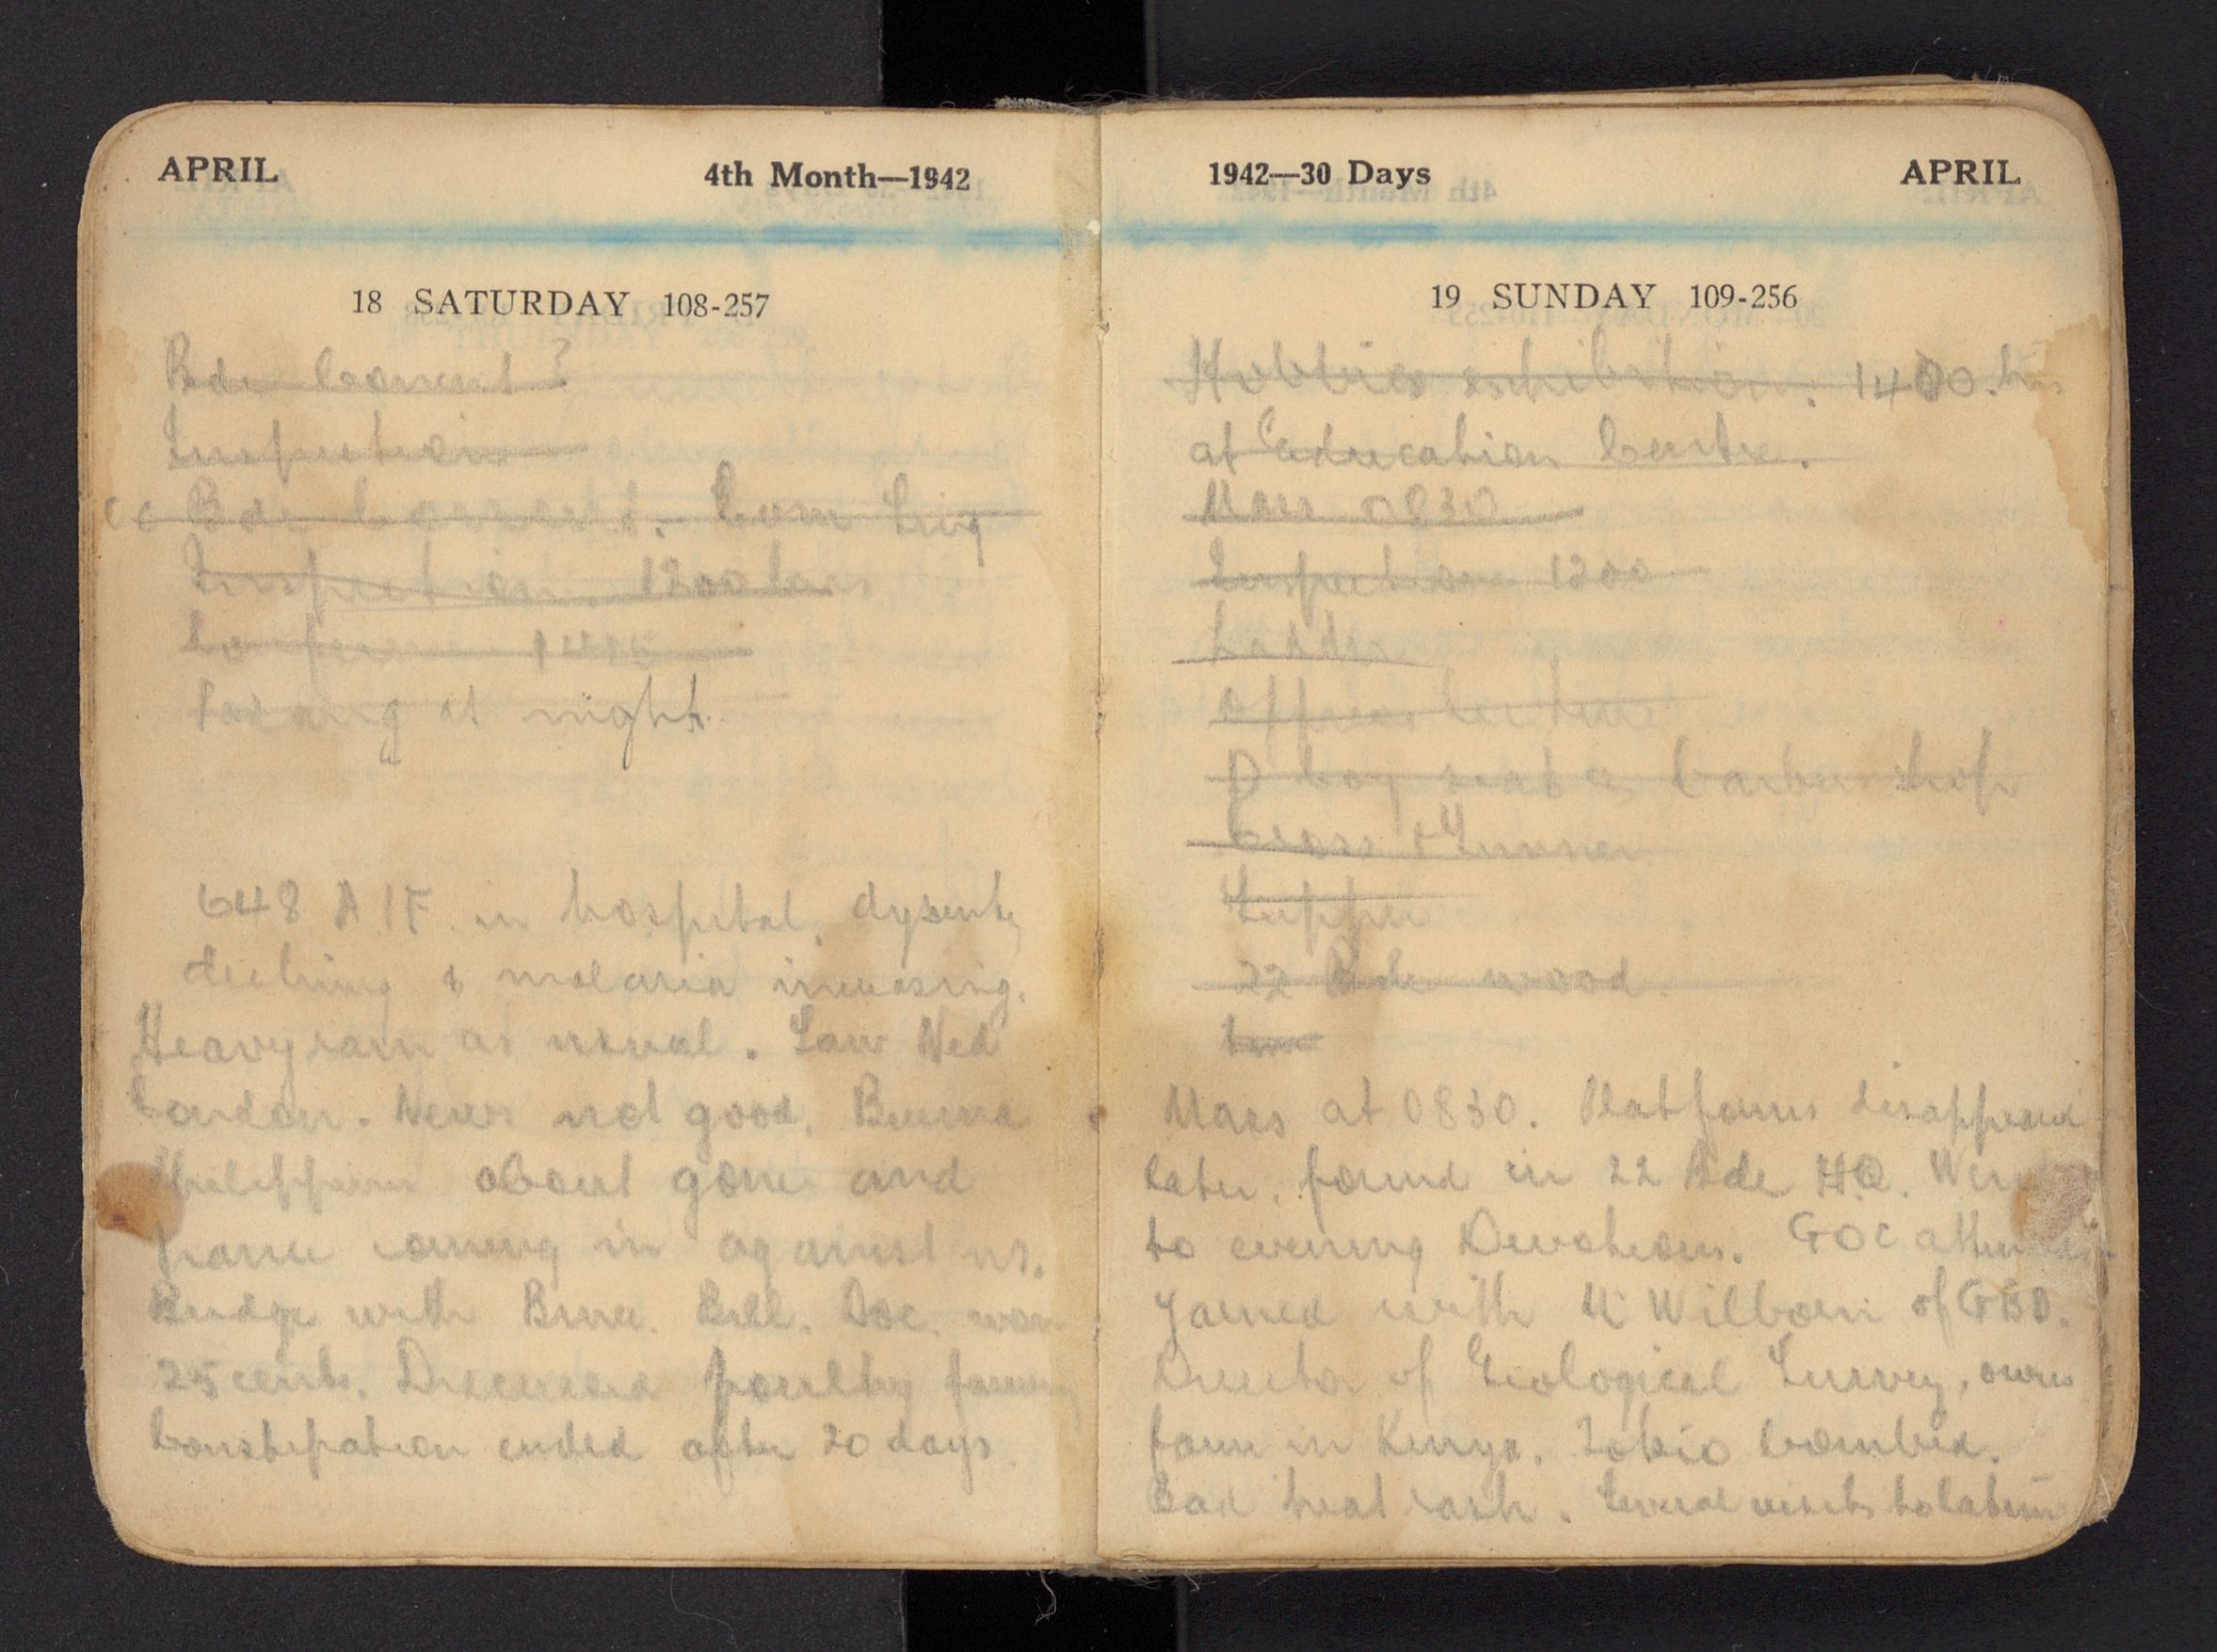 APRIL 4th Month—1942
18 SATURDAY 108-257
Bde Concert ?
Inspection
Bde Concert. Com Sing
Inspection 1200 hours
Conference 1415
Padang at night.
648 AIF in hospital, dysentery
declining & malaria increasing.
Heavy rain as usual. Saw Ned
Condon. News not good. Burma
Philippines about gone and
France coming in against us.
Bridge with Bruce. Bill. Doc. won
25 cents. Discussed poultry farming
Constipation ended after 20 days.
1942—30 Days APRIL
19 SUNDAY 109-256
Hobbies exhibition. 1400. hrs
at Education Centre.
Mass 0830
Inspection 1200
Ladder
Officers lecture
barber shop
Supper
22 Bde wood
Mass at 0830. Platforms disappeared
later, found in 22 Bde H.Q. Went
to evening Devotions. GOC attended
Yarned with Mr Wilborn of GBD.
Director of Geological Survey, owns
farm in Kenya. Tokio bombed.
Bad heat rash. Several visits to latrine